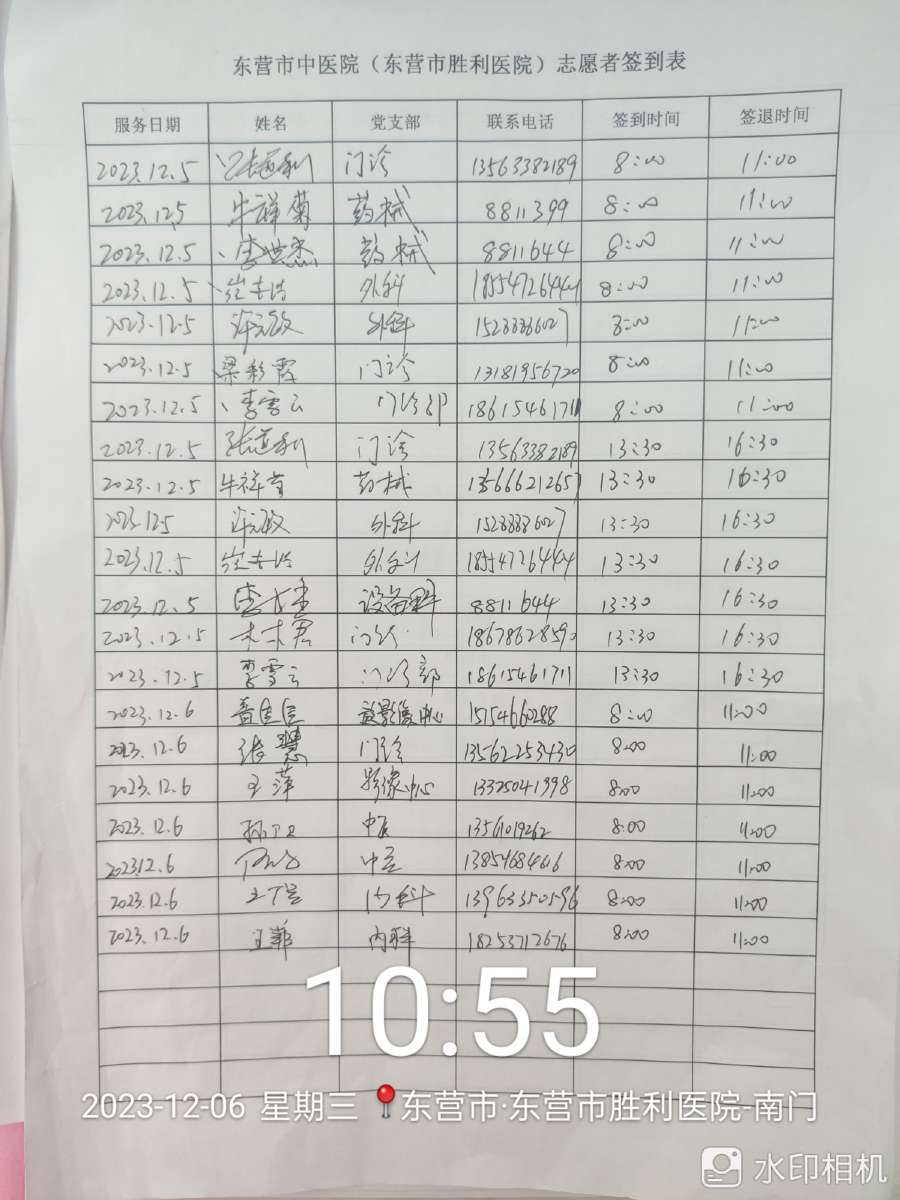 东营市中医院（东营市胜利医院）志愿者签到表
服务日期 姓名 党支部 联系电话 签到时间 签退时间
2023.12.5 门诊 13563382189 8:00 11:00
2023.12.5 牛祥菊 药械 8811399 8:00 11:00
2023.12.5 李世杰 药械 8811644 8:00 11:00
2023.12.5 外科 18554726444 8:00 11:00
2023.12.5 外科 15288886027 8:00 11:00
2023.12.5 梁彩霞 门诊 13181956720 8:00 11:00
2023.12.5 李雪云 门诊部 18615461711 8:00 11:00
2023.12.5 张道利 门诊 13563382189 13:30 16:30
2023.12.5 药械 13566621265 13:30 16:30
2023.12.5 外科 15288886027 13:30 16:30
2023.12.5 外科 18554726444 13:30 16:30
2023.12.5 设备科 8811644 13:30 16:30
2023.12.5 门诊 18678628590 13:30 16:30
2023.12.5 李雪云 门诊部 18615461711 13:30 16:30
2023.12.6 影像中心 15154660288 8:00 11:00
2023.12.6 张慧 门诊 13562253430 8:00 11:00
2023.12.6 王萍 影像中心 13325041998 8:00 11:00
2023.12.6 中医 13561019262 8:00 11:00
2023.12.6 中医 8:00 11:00
2023.12.6 内科 13963350596 8:00 11:00
2023.12.6 内科 18253712676 8:00 11:00
10:55
2023-12-06 星期三 东营市·东营市胜利医院-南门
水印相机